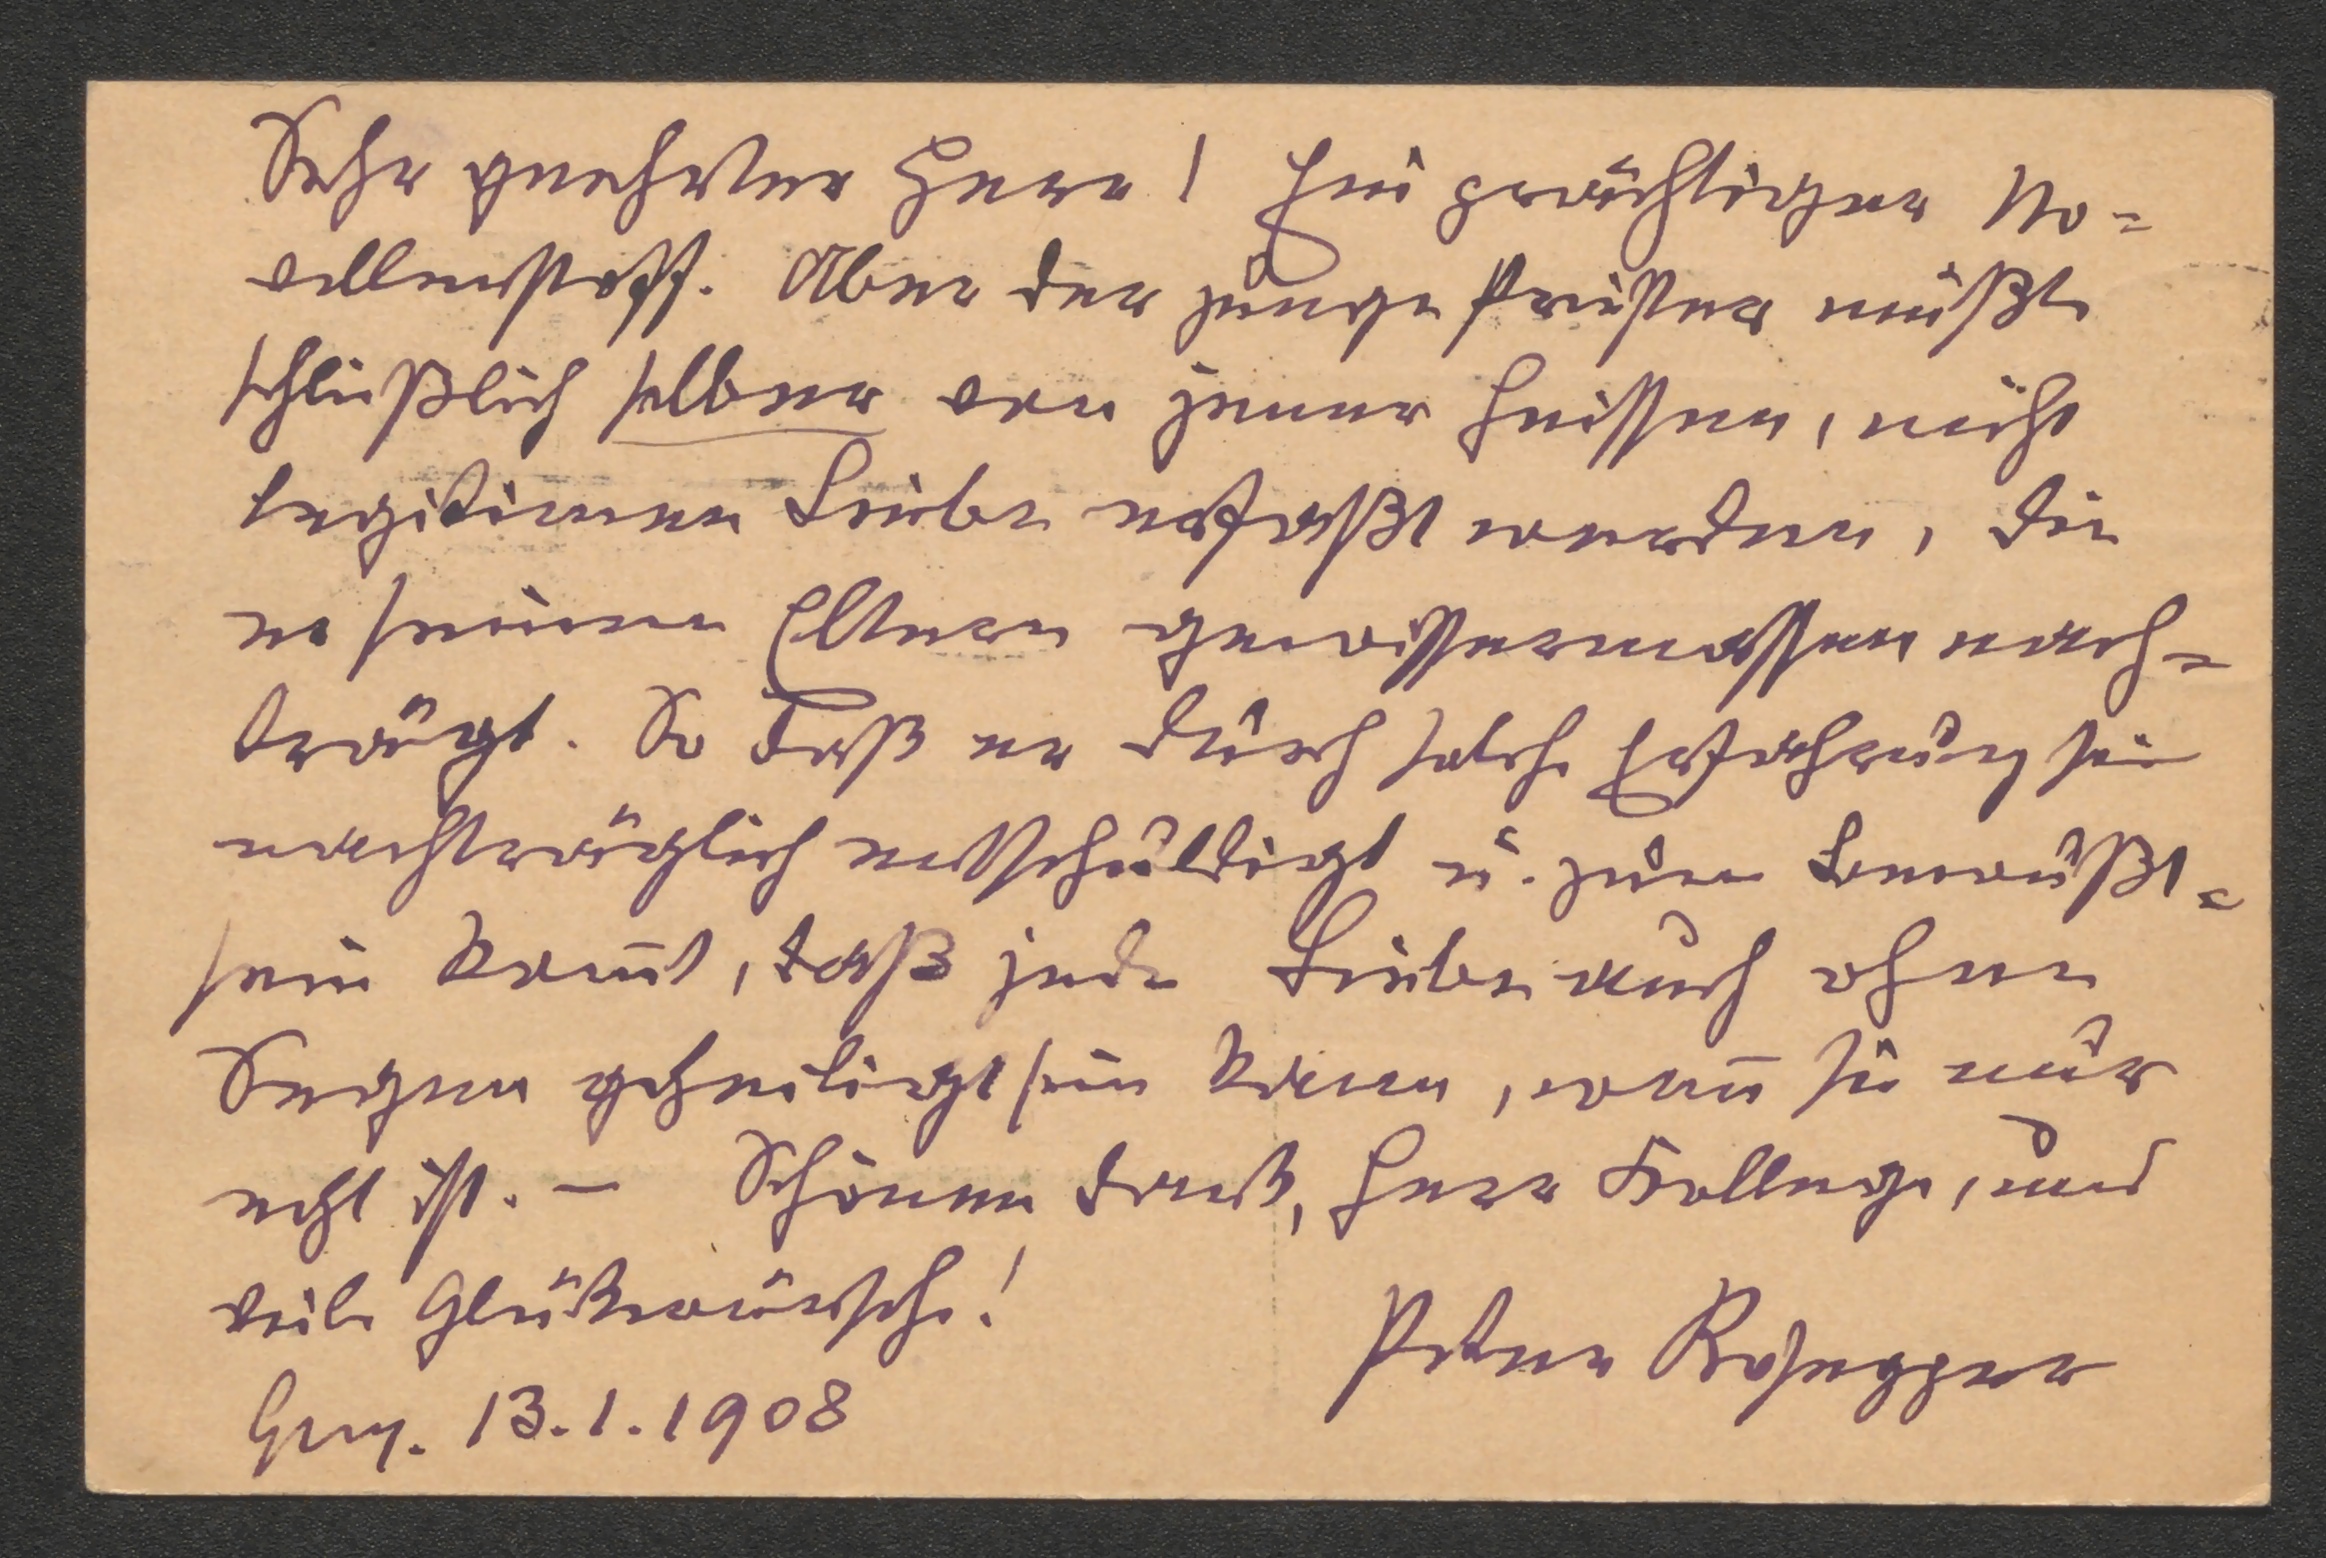 Sehr geehrter Herr! Ein prächtiger No-
vellenstoff. Aber der junge Priester müßte
schließlich selber von jener heissen, nicht
legitimen Liebe erfaßt werden, die
er seinen Eltern gewissermassen nach-
trägt. So daß er durch solche Erfahrung sie
nachträglich entschuldigt u. zum Bewußt-
sein kom̅t, daß jede Liebe auch ohne
Segen geheiligt sein kann, wen̅ sie nur
echt ist. – Schönen Dank, Herr Kollege, und
viele Glückwünsche!
Peter Rosegger
Graz. 13.1.1908